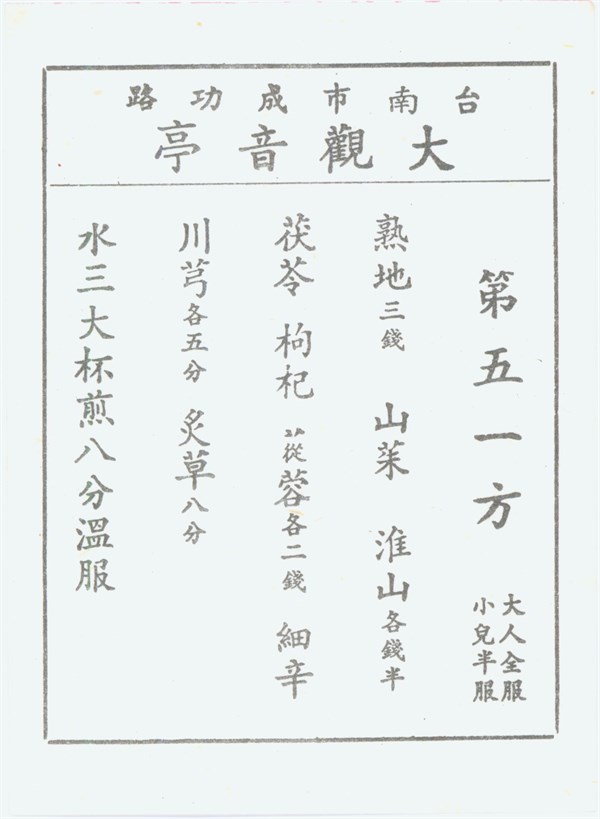 台南市成功路
大觀音亭
第五一方
大人全服
小兒半服
熟地三錢 山茱 淮山各錢半
茯苓 枸杞 蓯蓉各二錢 細辛
川芎各五分 炙草八分
水三大杯煎八分溫服